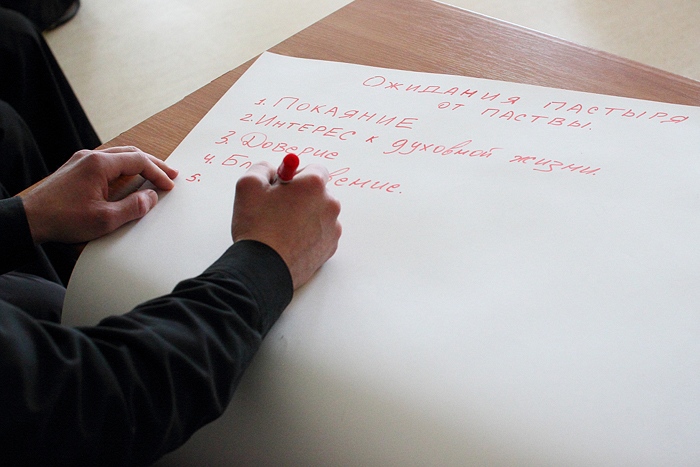 Ожидания пастыря
от паствы.
1. Покаяние
2. Интерес к духовной жизни.
3. Доверие
4.
5.